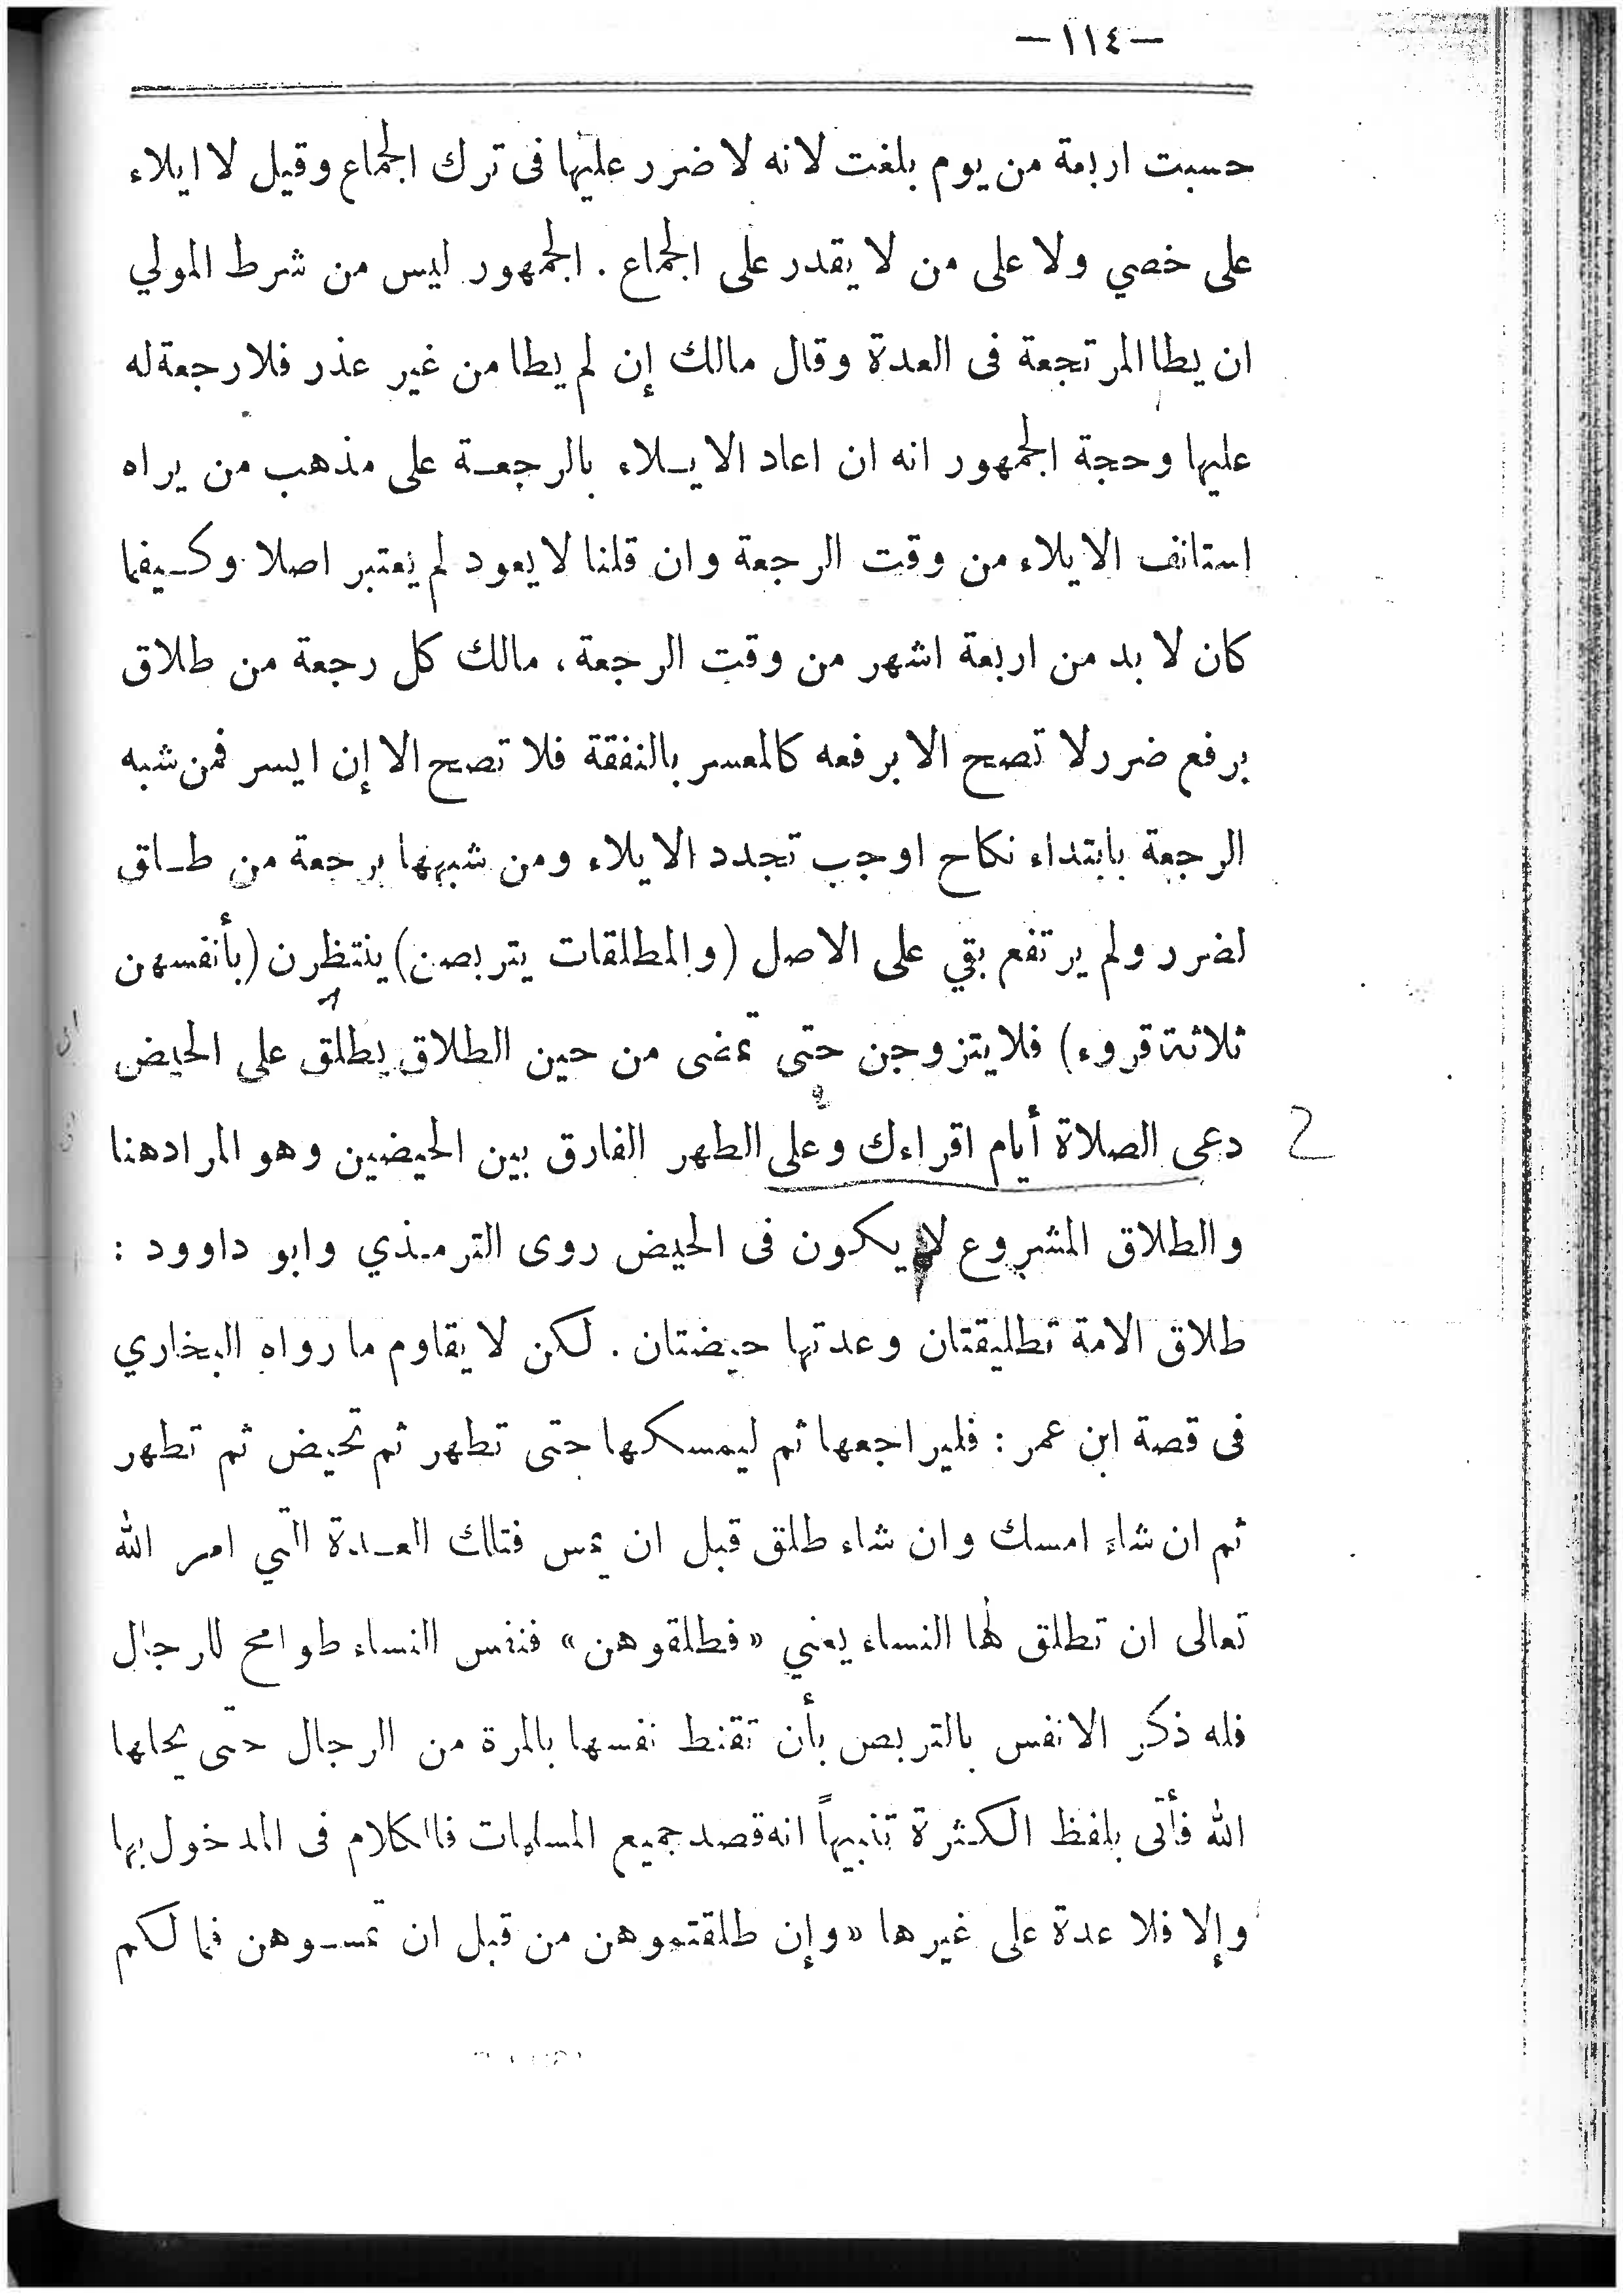 —١١٤—
حسبت اربعة من يوم بلغت لانه لا ضرر عليها فى ترك الجماع وقيل لا ايلاء
على خصي ولا على من لا يقدر على الجماع . الجمهور ليس من شرط المولي
ان يطا المرتجعة فى العدة وقال مالك إن لم يطا من غير عذر فلا رجعة له
عليها وحجة الجمهور انه ان اعاد الايـلاء بالرجعـة على مذهب من يراه
استانف الايلاء من وقت الرجعة وان قلنا لا يعود لم يعتبر اصلا وكـيفما
كان لا بد من اربعة اشهر من وقت الرجعة، مالك كل رجعة من طلاق
برفع ضرر لا تصح الا برفعه كالمعسر بالنفقة فلا تصح الا إن ايسر فمن شبه
الرجعة بابتداء نكاح اوجب تجدد الايلاء ومن شبهها برجعة من طـاق
لضرر ولم يرتفع بقي على الاصل (والمطلقات يتربصن) ينتظرن (بأنفسهن
ثلاثة قروء) فلا يتزوجن حتى تمضى من حين الطلاق يطلق على الحيض
دعى الصلاة أيام اقراءك وعلى الطهر الفارق بين الحيضين وهو المراد هنا
والطلاق المشروع لا يكون فى الحيض روى الترمـذي وابو داوود :
طلاق الامة تطليقتان وعدتها حيضتان . لكن لا يقاوم ما رواه البخاري
فى قصة ابن عمر : فليراجعها ثم ليمسكها حتى تطهر ثم تحيض ثم تطهر
ثم ان شاء امسك وان شاء طلق قبل ان يمس فتلك العـدة التي امر الله
تعالى ان تطلق لها النساء يعني «فطلقوهن» فنفس النساء طوامح للرجال
فله ذكر الانفس بالتربص بأن تقنط نفسها بالمرة من الرجال حتى يحلها
الله فأتى بلفظ الكثرة تنبيهاً انه قصد جميع المسلمات فالكلام فى المدخول بها
وإلا فلا عدة على غيرها «وإن طلقتموهن من قبل ان تمسـوهن فما لكم